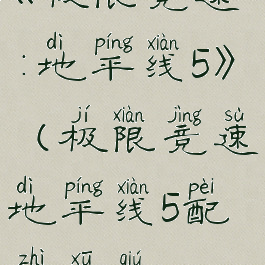 《极限竞速
dì píng xiàn
:地平线5》
jí xiàn jìng sù
(极限竞速
dì píng xiàn pèi
地平线5配
zhì xū qiú